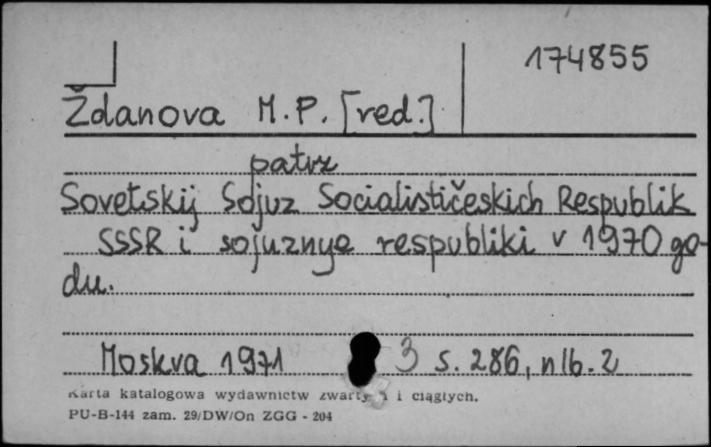 174855
Ždanova M.P. [red.]
patrz
Sovetskij Sojuz Socialističeskich Respublik
SSSR i sojuznye respubliki v 1970 go-
du.
Moskva 1971 3 s. 286, nlb. 2
Karta katalogowa wydawnictw zwartych i ciągłych.
PU-B-144 zam. 29/DW/On ZGG - 204